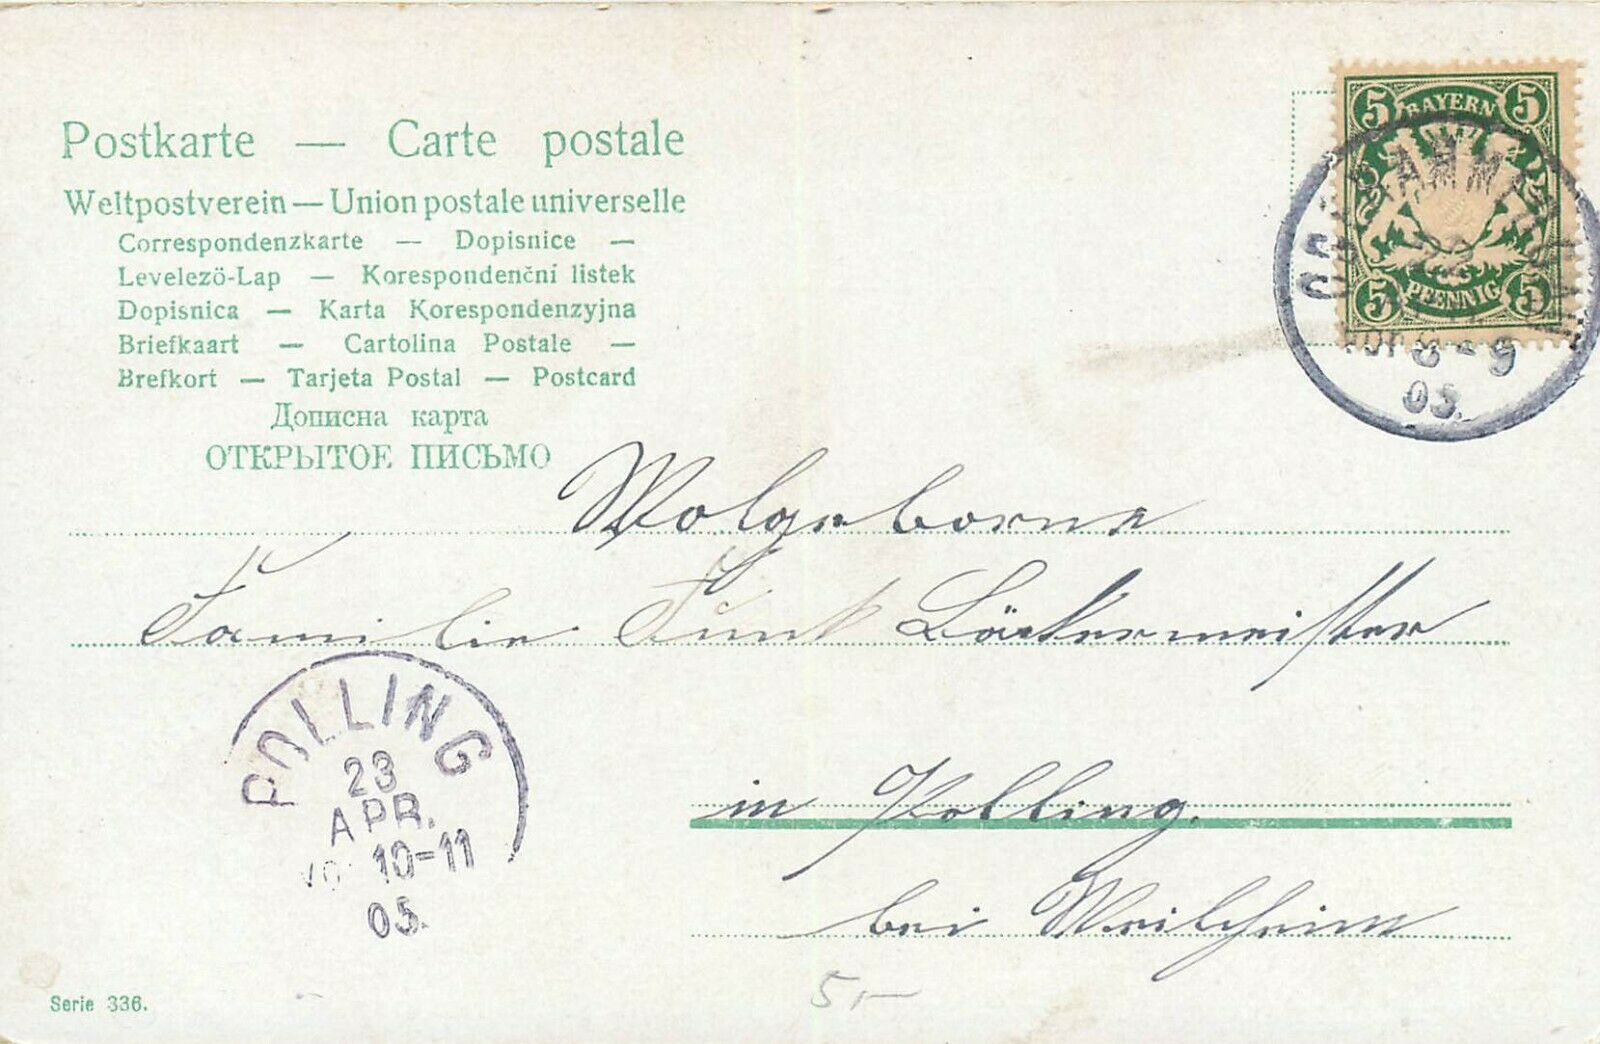 Postkarte — Carte postale
Weltpostverein — Union postale universelle
Correspondenzkarte — Dopisnice —
Levelezö-Lap — Korespondenční listek
Dopisnica — Karta Korespondenzyjna
Briefkaart — Cartolina Postale —
Brefkort — Tarjeta Postal — Postcard
Дописна карта
ОТКРЫТОЕ ПИСЬМО
5 BAYERN 5
5 PFENNIG 5
22
8-9
05.
Wolgeborne
Familie Funk Bäckermeister
in Polling.
bei Weilheim
POLLING
23
APR.
10-11
05.
5,—
Serie 336.